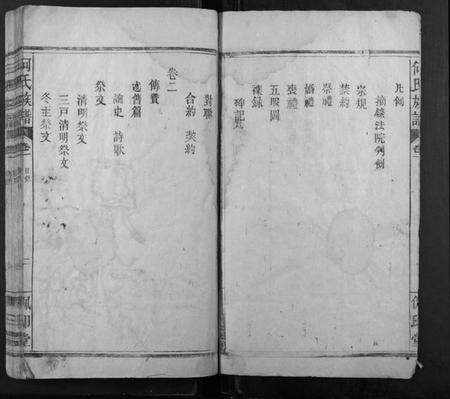 何氏族譜
卷一
佩印堂
凡例
摘錄法院判例
宗規
禁約
祭禮
婚禮
喪禮
五服圖
雜錄
碑記
對聯
合約 契約
卷二
傳贊
述舊篇
詠史 詩歌
祭文
清明祭文
三戶清明祭文
冬至祭文
何氏族譜
卷一
目錄
佩印堂